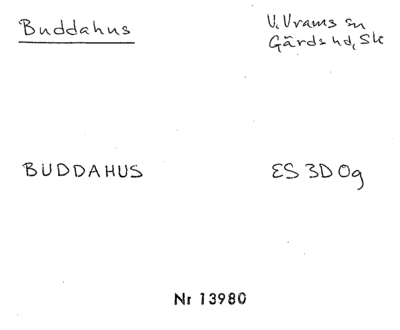 Buddahus
V. Vrams sn
Gärds hd, Sk
BUDDAHUS
ES 3D 0g
Nr 13980